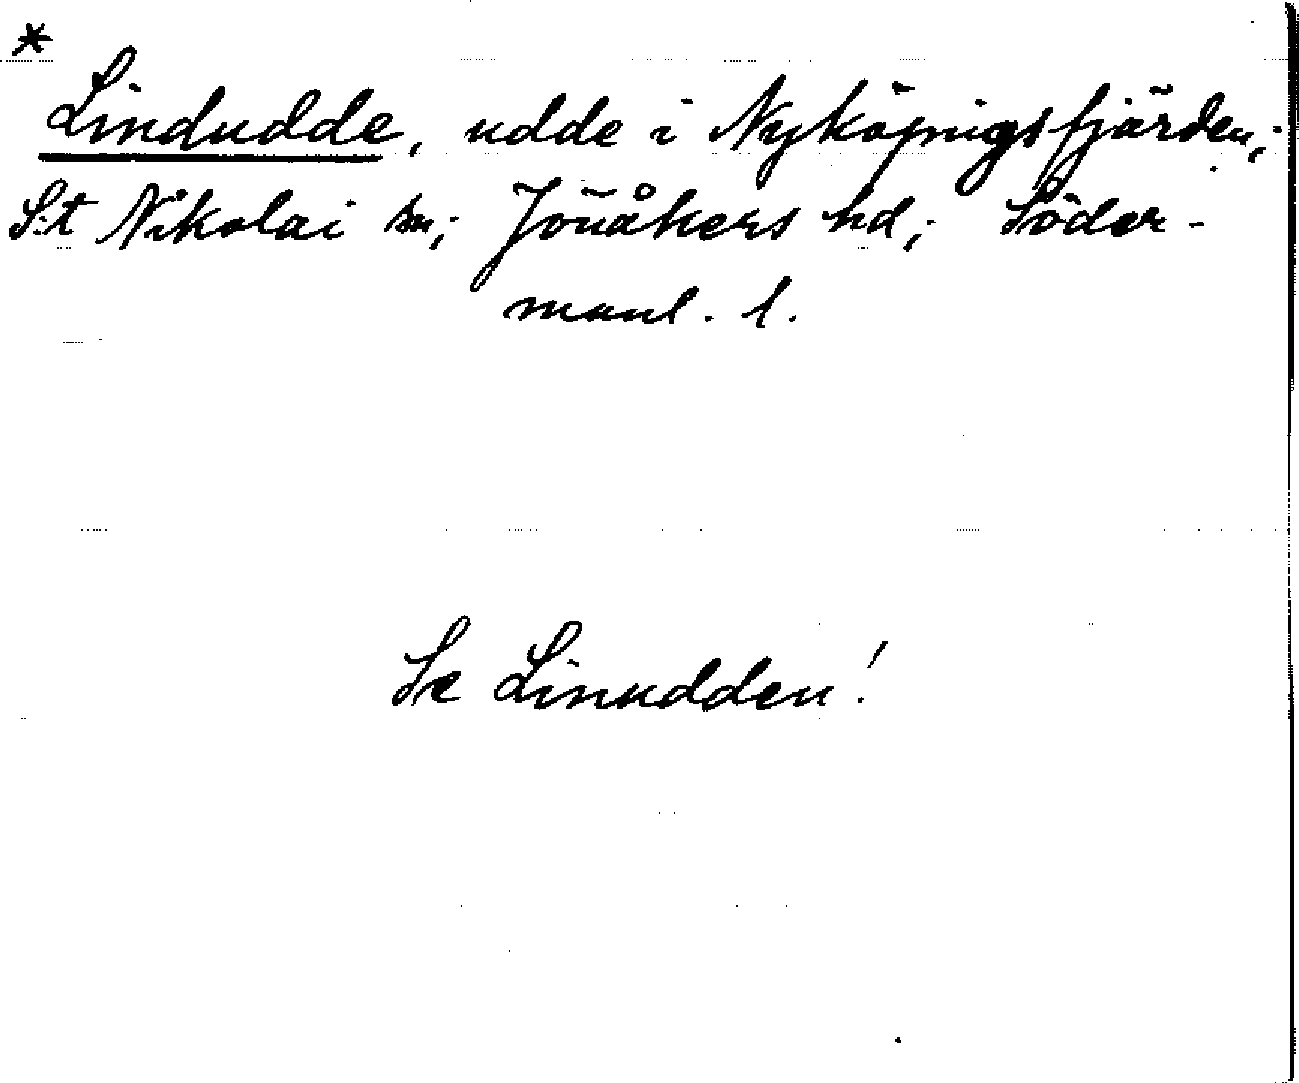 *
Lindudde, udde i Nyköpingsfjärden;
S:t Nikolai sn; Jönåkers hd; Söder-
manl. l.
Se Linudden!